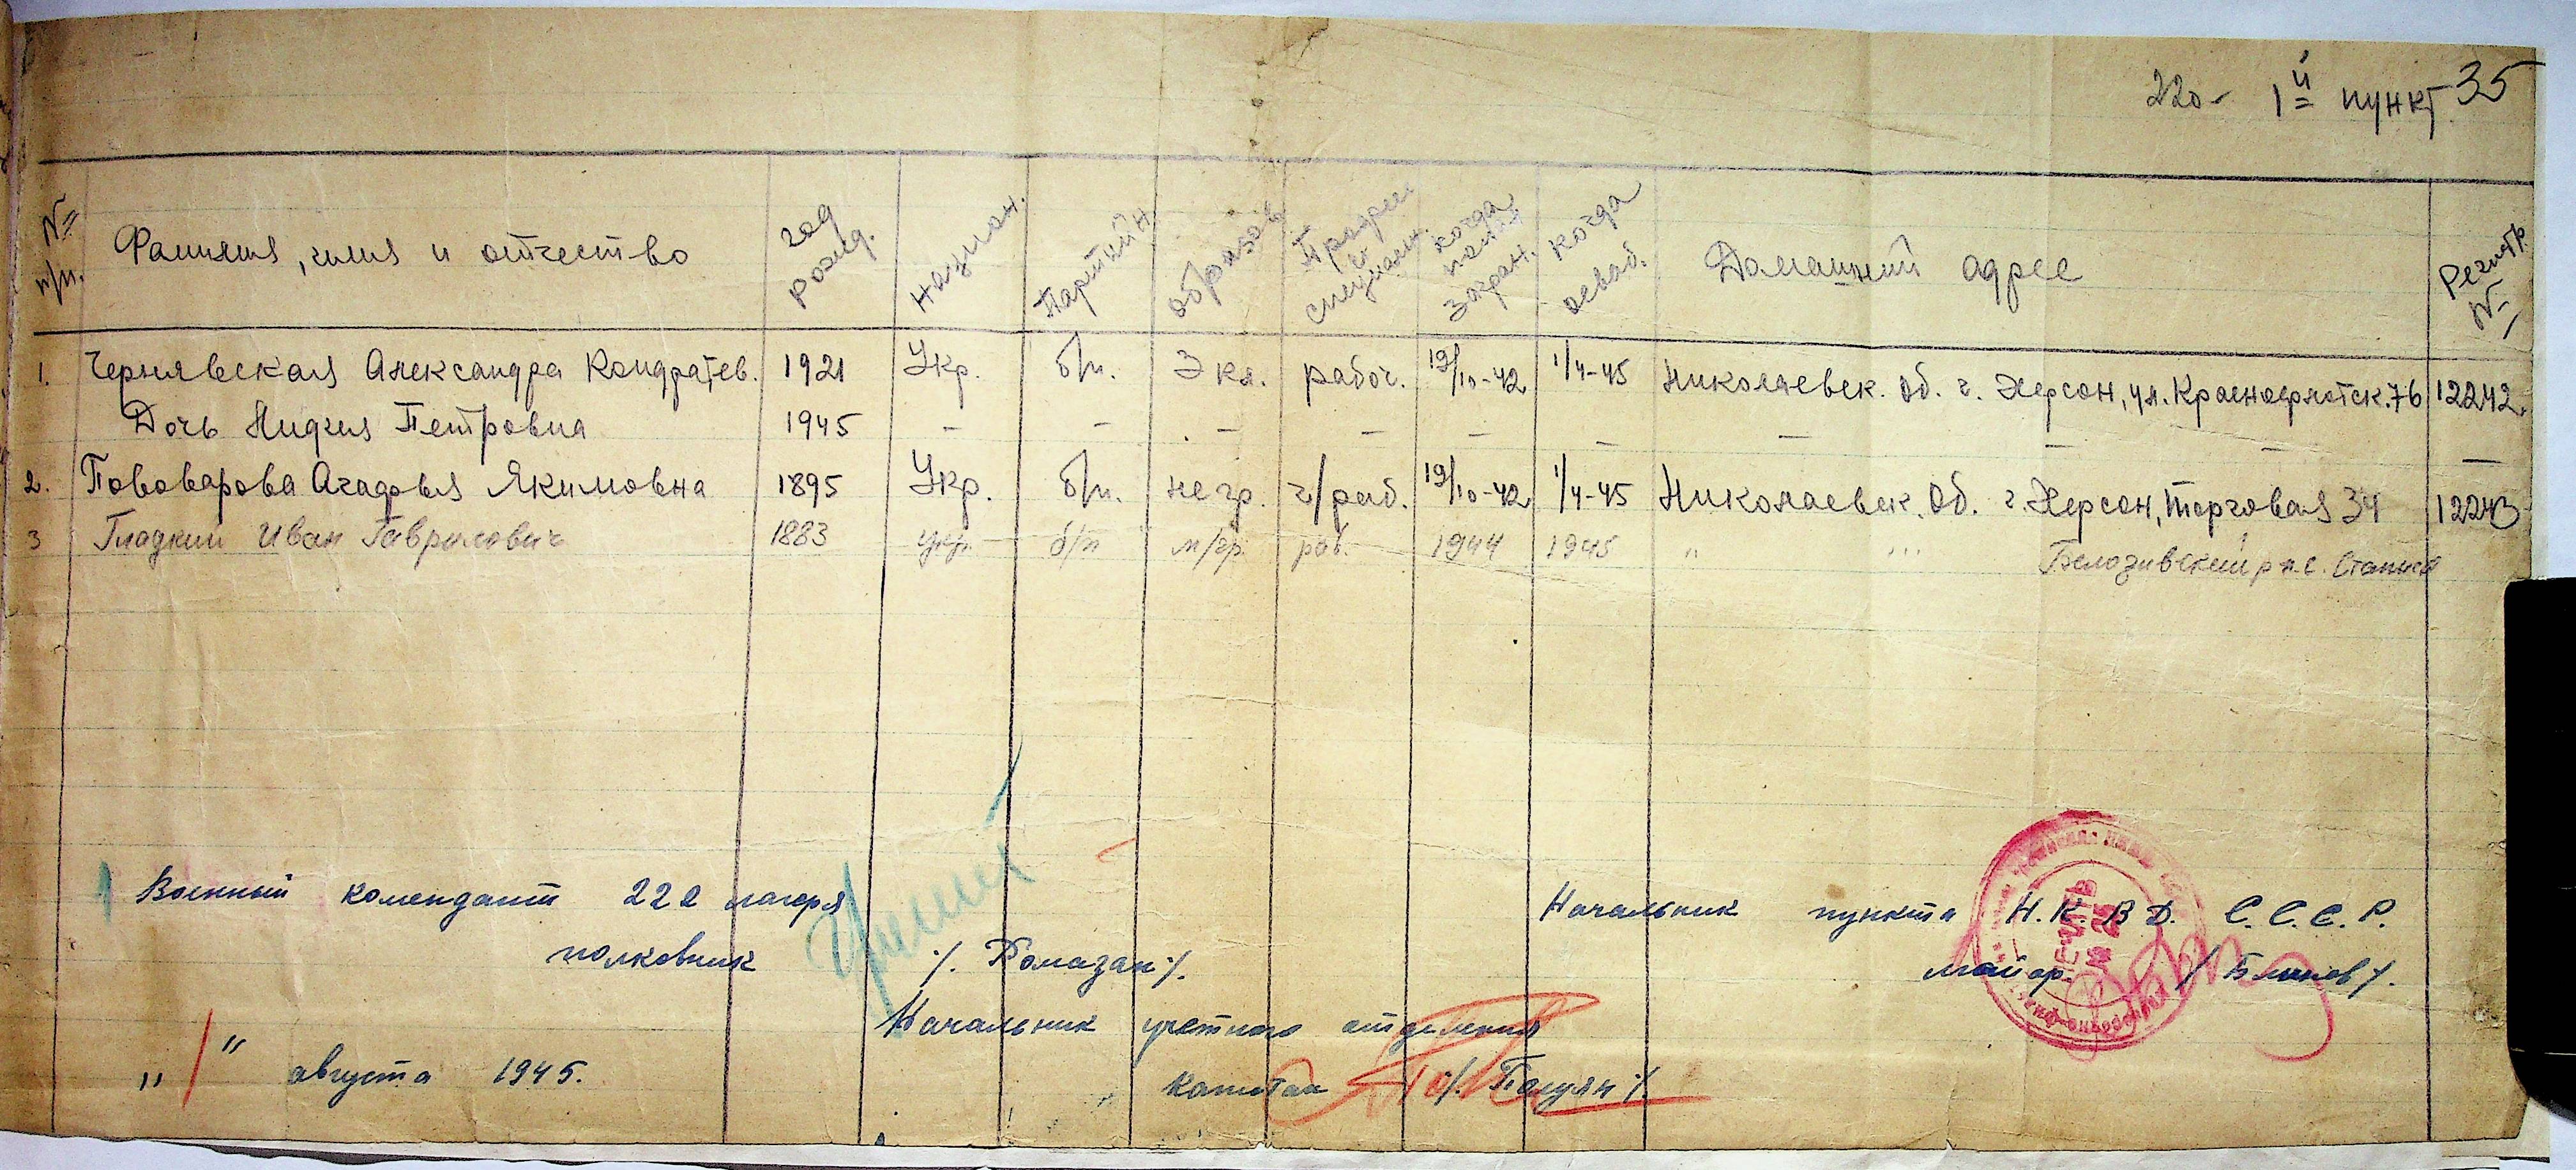 220- 1й пункт 35
№ п/п. Фамилия, имя и отчество год рожд. Национ. Партийн. образов. Професс. и специальн. когда попал загран. когда освоб. Домашний адрес Регистр. №
1. Чернявская Александра Кондратев. 1921 Укр. б/п. 3 кл. рабоч. 19/10-42 1/4-45 Николаевск. об. г. Херсон, ул. Краснофлотск. 76 12242
Дочь Лидия Петровна 1945 - - - - - - - - - -
2. Пововарова Агафья Якимовна 1895 Укр. б/п. негр. ч/раб. 19/10-42 1/4-45 Николаевск. Об. г. Херсон, Торговая 34 12243
3 Гладкий Иван Гаврилович 1883 укр. б/п м/гр. раб. 1944 1945 " " Белозивский р н. с.
Военный комендант 222 лагеря Начальник пункта Н.К.В.Д. С.С.С.Р.
полковник /. Ромазан /. майор / Блинов /.
Начальник учетного отделения
„ / " августа 1945. капитан /. Полуян /.